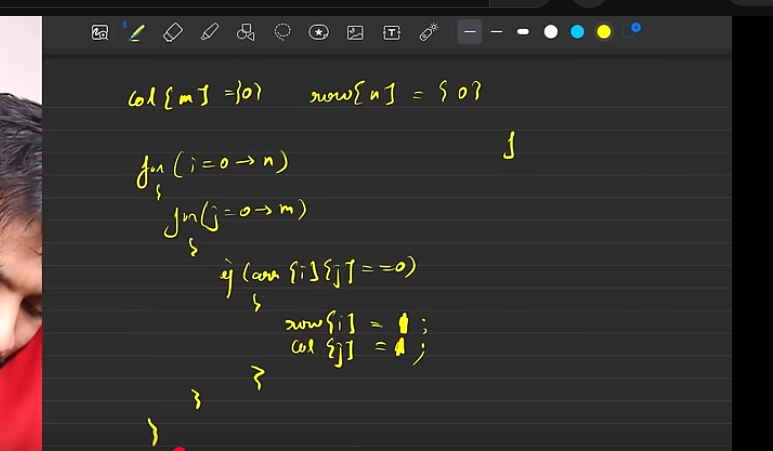 col[m] = {0} row[n] = {0}
for(i=0→n)
{
for(j=0→m)
{
if (arr[i][j]==0)
{
row[i] = 1;
col[j] = 1;
}
}
}